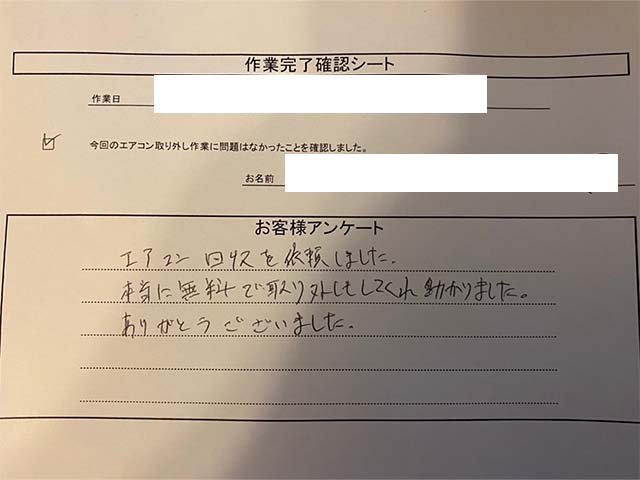 作業完了確認シート
作業日
今回のエアコン取り外し作業に問題はなかったことを確認しました。
お名前
お客様アンケート
エアコン回収を依頼しました.
本当に無料で取り外しもしてくれ助かりました。
ありがとうございました.